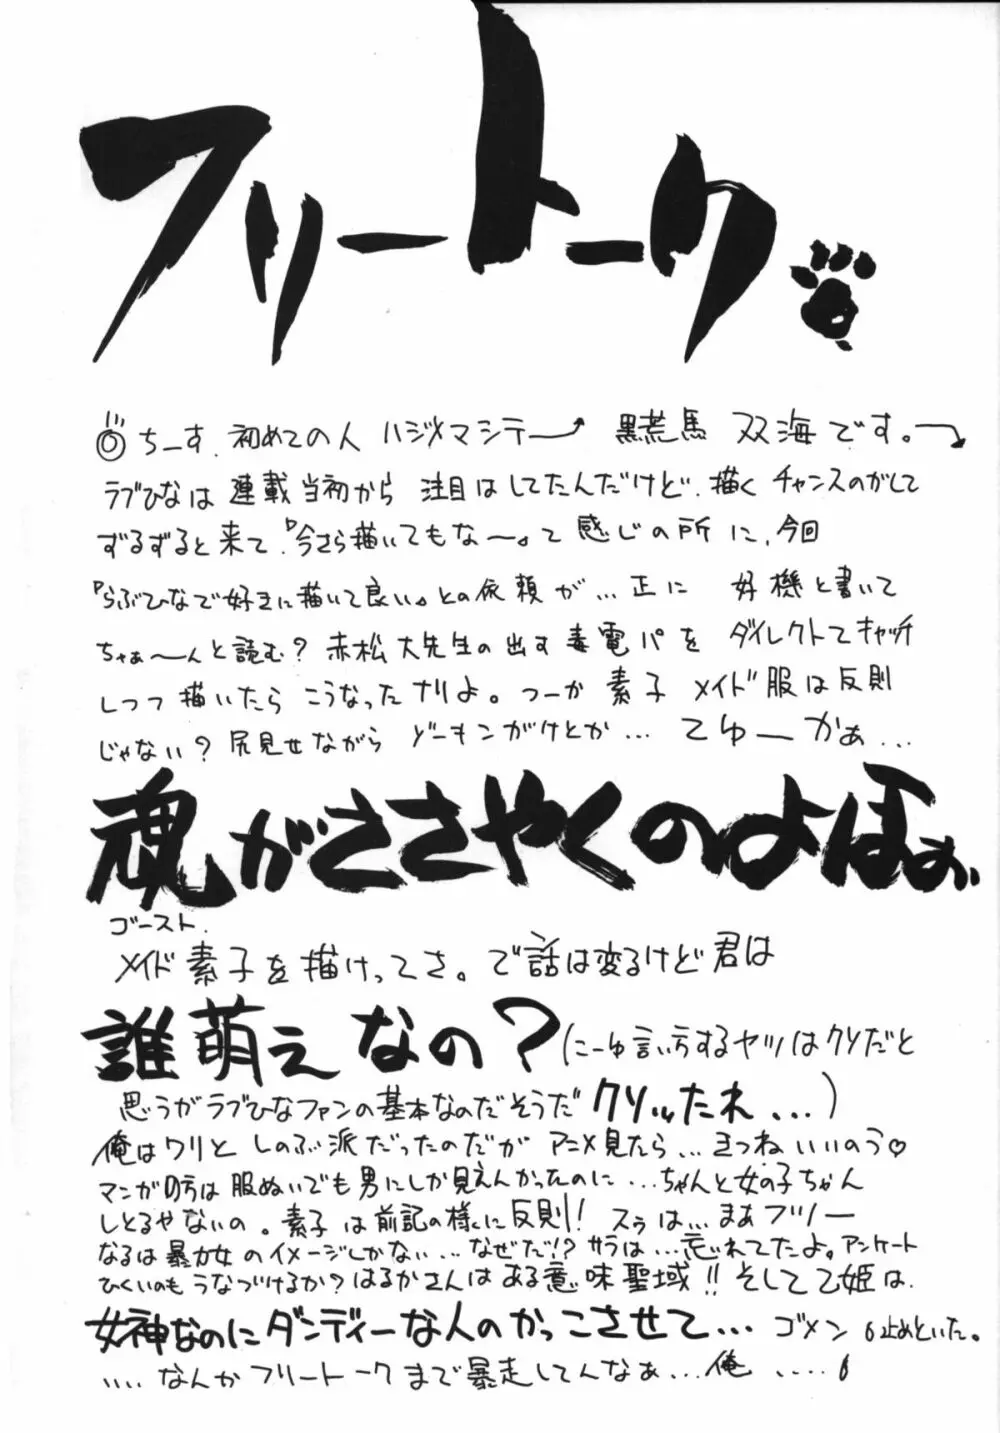 フリートーク
ちーす. 初めての人 ハジメマシテー 黒荒馬 双海です。
ラブひなは 連載当初から 注目はしてたんだけど、描く チャンスのがして
ずるずると来て、『今さら描いてもな〜。』て 感じの所に、今回
『らぶひなで好きに描いて良い』との依頼が…正に 好機と書いて
ちゃぁ〜んと読む? 赤松大先生の出す毒電パを ダイレクトでキャッチ
しつつ描いたら こうなったナリよ。つーか 素子 メイド服は反則
じゃない? 尻見せながら ゾーキンがけとか… てゆーかぁ…
魂がささやくのよほぉ、
ゴースト.
メイド素子を描けってさ。で話は変るけど君は
誰萌えなの?(にーゆ言い方するヤツはクソだと
思うがラブひなファンの基本なのだそうだ クソッたれ...)
俺はワリと しのぶ派だったのだが アニメ見たら...きつねいいのう♡
マンガの方は服ぬいでも男にしか見えんかったのに...ちゃんと女の子ちゃん
しとるやないの。素子は前記の様に反則! スゥは...まあフツー
なるは暴力女のイメージしかない...なぜだ!? サラは...忘れてたよ。アンケート
ひくいのもうなづけるか?はるかさんはある意味聖域!! そして乙姫は、
女神なのにダンディーな人のかっこさせて... ゴメン 6止めといた。
....なんかフリートークまで暴走してんなぁ...俺 ....6